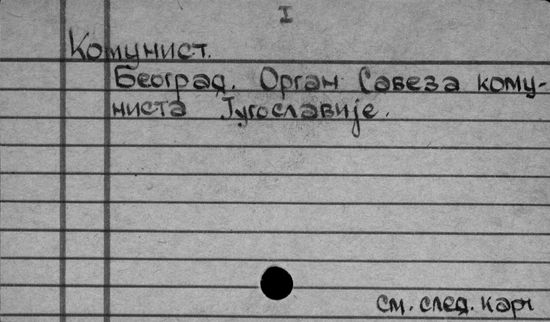 I
Комунист.
Београд. Орган Савеза кому-
ниста Југославије.
см. след. карт